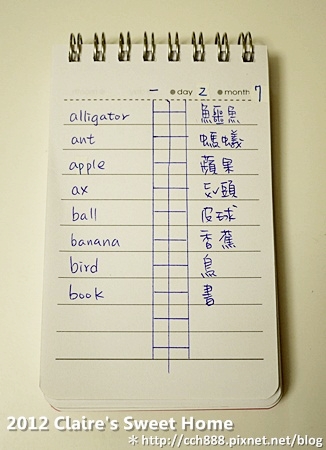 一 ●day 2 ●month 7
alligator 鱷魚
ant 螞蟻
apple 蘋果
ax ㄈㄨˇ頭
ball 皮球
banana 香蕉
bird 鳥
book 書
2012 Claire's Sweet Home
*http://cch888.pixnet.net/blog